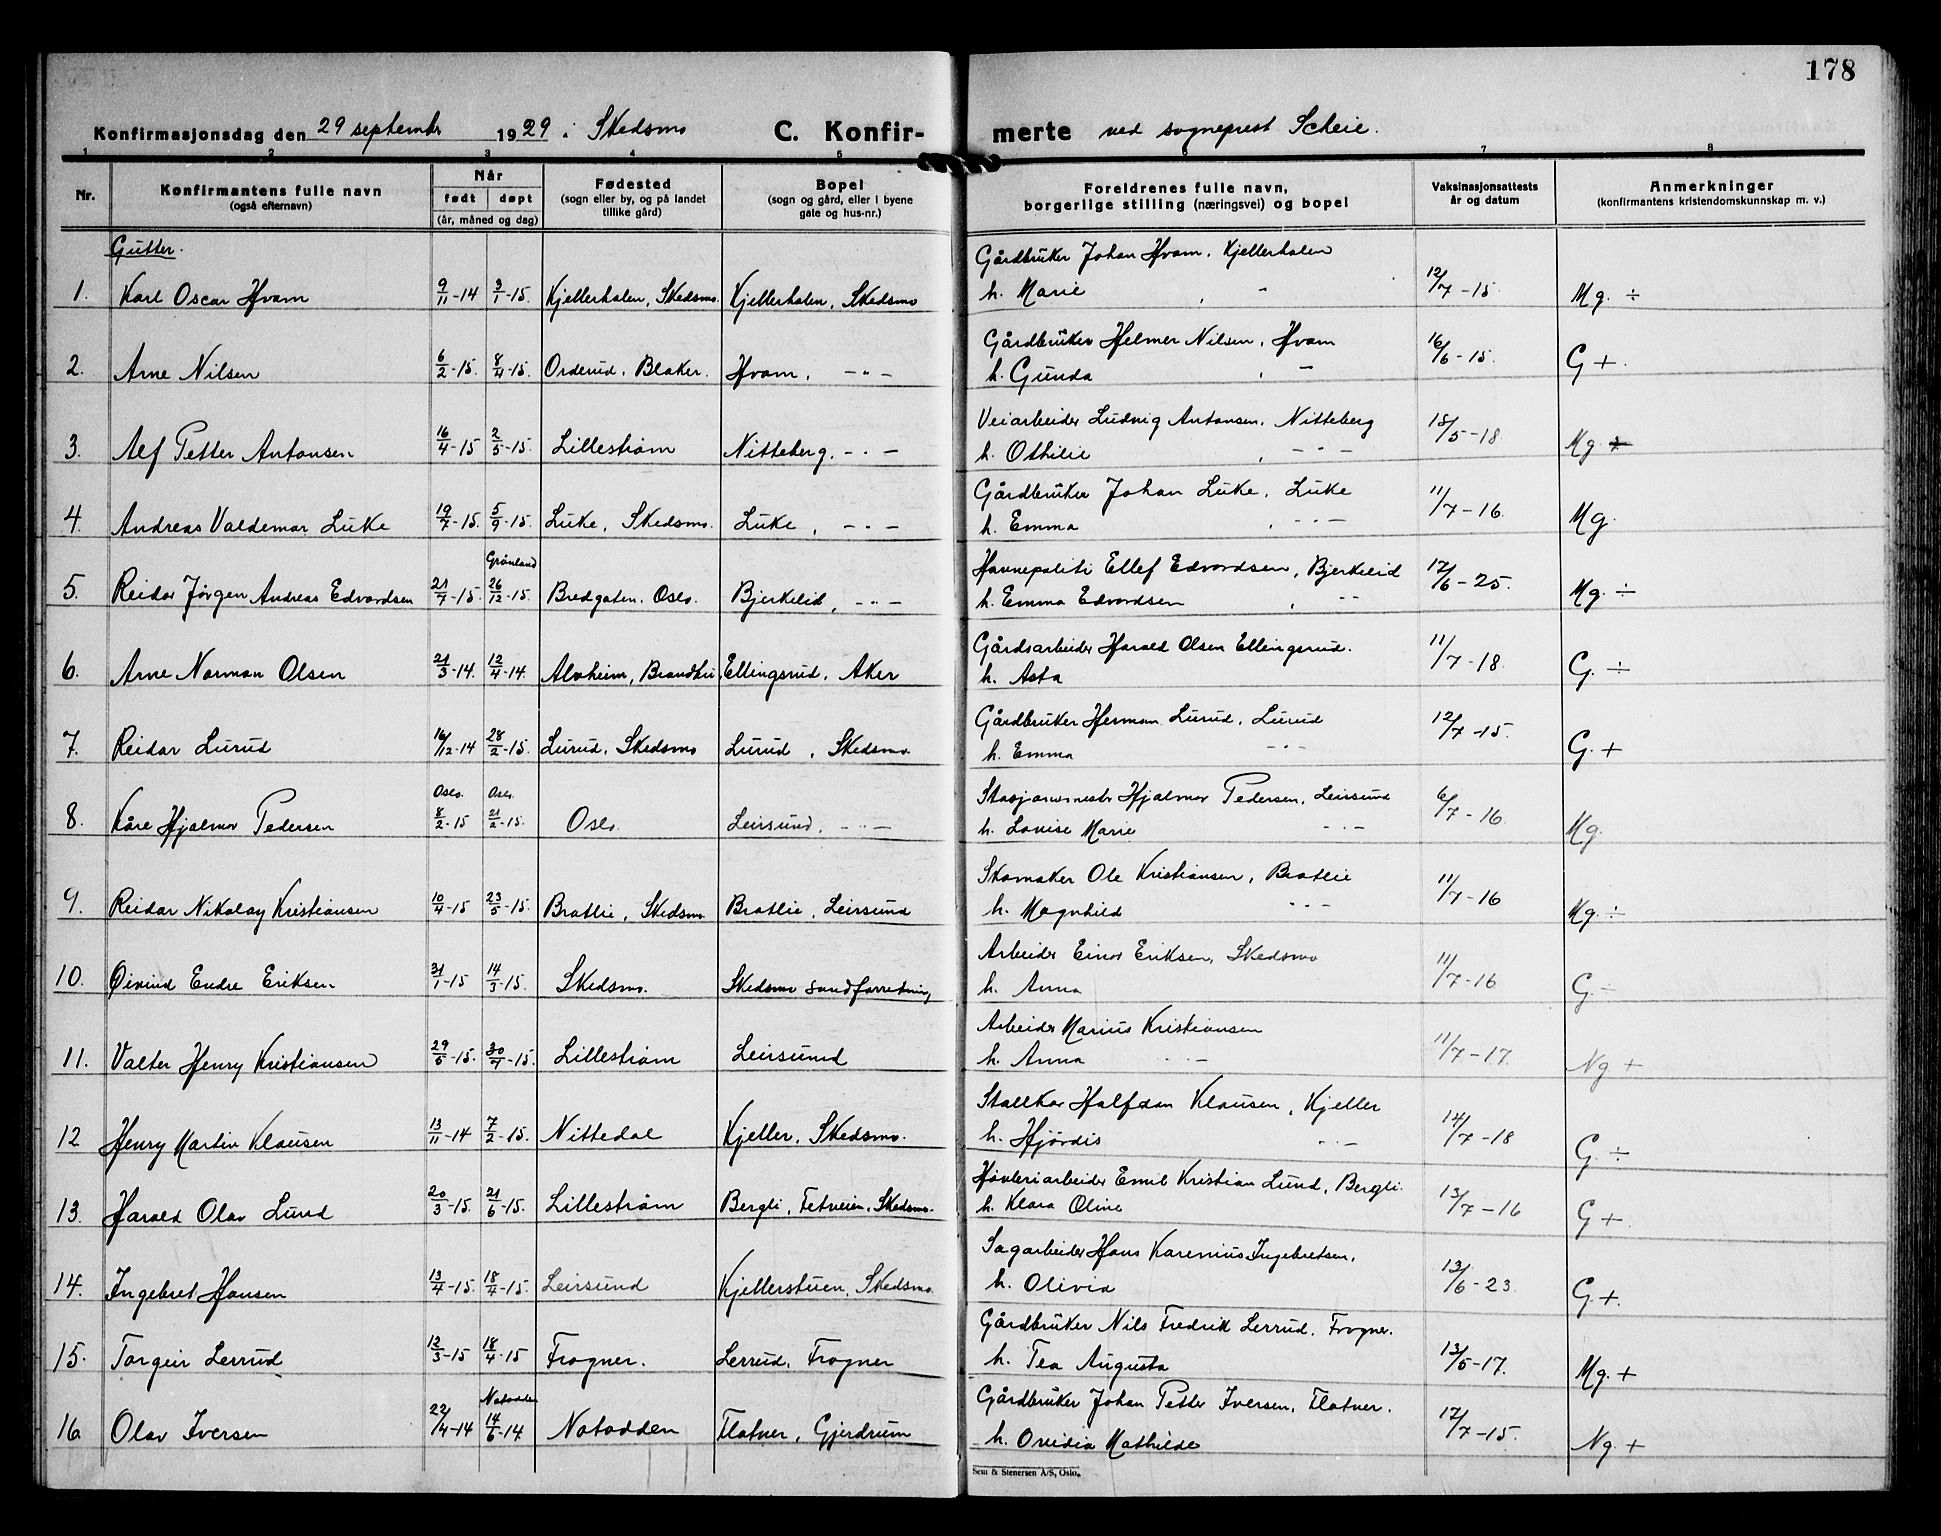 178
Konfirmasjonsdag den 29 september 1929 i Skedsmo C. Konfir- merte ved sogneprest Scheie.
1 2 3 4 5 6 7 8
Nr. Konfirmantens fulle navn (også efternavn) Når født døpt (år, måned og dag) Fødested (sogn eller by, og på landet tillike gård) Bopel (sogn og gård, eller i byene gate og hus-nr.) Foreldrenes fulle navn, borgerlige stilling (næringsvei) og bopel Vaksinasjonsattests år og datum Anmerkninger (konfirmantens kristendomskunnskap m. v.)
Gutter.
Gårdbruker Johan Hvam, Kjellerhalen
1. Karl Oscar Hvam 9/11-14 3/1-15. Kjellerhalen, Skedsmo. Kjellerhalen, Skedsmo h. Marie , " 12/7-15. Mg. ÷
Gårdbruker Helmer Nilsen, Hvam
2. Arne Nilsen 6/2-15. 8/4-15. Orderud, Blaker. Hvam, -"- h. Gunda , - 16/6-15. G +.
Veiarbeider Ludvig Antonsen, Nitteberg
3. Alf Petter Antonsen 16/4-15 2/5-15. Lillestrøm Nitteberg, -"- h. Othilie , -"- 18/5-18. Mg +
Gårdbruker Johan Luke, Luke
4. Andreas Valdemar Luke 19/7-15. 5/9-15. Luke, Skedsmo. Luke, -"- h. Emma , -"- 11/7-16. Mg.
Grønland Havnepoliti Ellef Edvardsen, Bjerkelid
5. Reidar Jørgen Andreas Edvardsen 21/7-15. 26/12-15. Bredgaten, Oslo. Bjerkelid, -"- h. Emma Edvardsen , -" 12/6-25. Mg. ÷
Gårdsarbeider Harald Olsen Ellingsrud.
6. Arne Norman Olsen 21/3-14. 12/4-14. Alvheim, Brandbu Ellingsrud, Aker h. Asta 11/7-18. G. ÷
Gårdbruker Herman Lurud, Lurud
7. Reidar Lurud 16/12-14 28/2-15. Lurud, Skedsmo Lurud, Skedsmo. h. Emma -"- 12/7-15. G. +
Oslo. Oslo. Stasjonsmester Hjalmar Pedersen, Leirsund
8. Kåre Hjalmar Pedersen 8/2-15 21/2-15. Oslo. Leirsund, -"- h. Lovise Marie -"- 6/7-16. Mg.
Skomaker Ole Kristiansen, Bratlie
9. Reidar Nikolay Kristiansen 10/4-15 23/5-15. Bratlie, Skedsmo Bratlie, Leirsund h. Magnhild -"- 11/7-16 Mg. ÷
Arbeider Einar Eriksen, Skedsmo
10. Øivind Endre Eriksen 31/1-15 14/3-15. Skedsmo. Skedsmo sandforretning h. Anna 11/7-16 G. ÷
Arbeider Marius Kristiansen
11. Valter Henry Kristiansen 29/5-15. -15. Lillestrøm Leirsund h. Anna -"- 11/7-17. Ng +
Stallkar Halfdan Klausen, Kjeller
12 Henry Martin Klausen 13/11-14 7/2-15. Nittedal Kjeller, Skedsmo. h. Hjørdis -"- 14/7-18 G. ÷
Høvleriarbeider Emil Kristian Lund, Bergli.
13. Harald Olav Lund 20/3-15. 21/6-15. Lillestrøm Bergli, Fetveien, Skedsmo. h. Klara Oline 13/7-16 G +.
Sagarbeider Hans Karenius Ingebretsen,
14. Ingebret Hansen 13/4-15. 18/4-15. Leirsund Kjellerstuen, Skedsmo. h. Olivia 13/6-23. G +.
Gårdbruker Nils Fredrik Lerrud, Frogner.
15. Torgeir Lerrud 12/3-15 18/4-15 Frogner. Lerrud, Frogner h. Tea Augusta 13/5-17. Mg. +
Notodden Gårdbruker Johan Petter Iversen, Flatner.
16 Olav Iversen 22/4-14 14/6-14 Notodden Flatner, Gjerdrum h. Ovidia Mathilde 12/7-15. Ng. +
Sem & Stenersen A/S, Oslo.